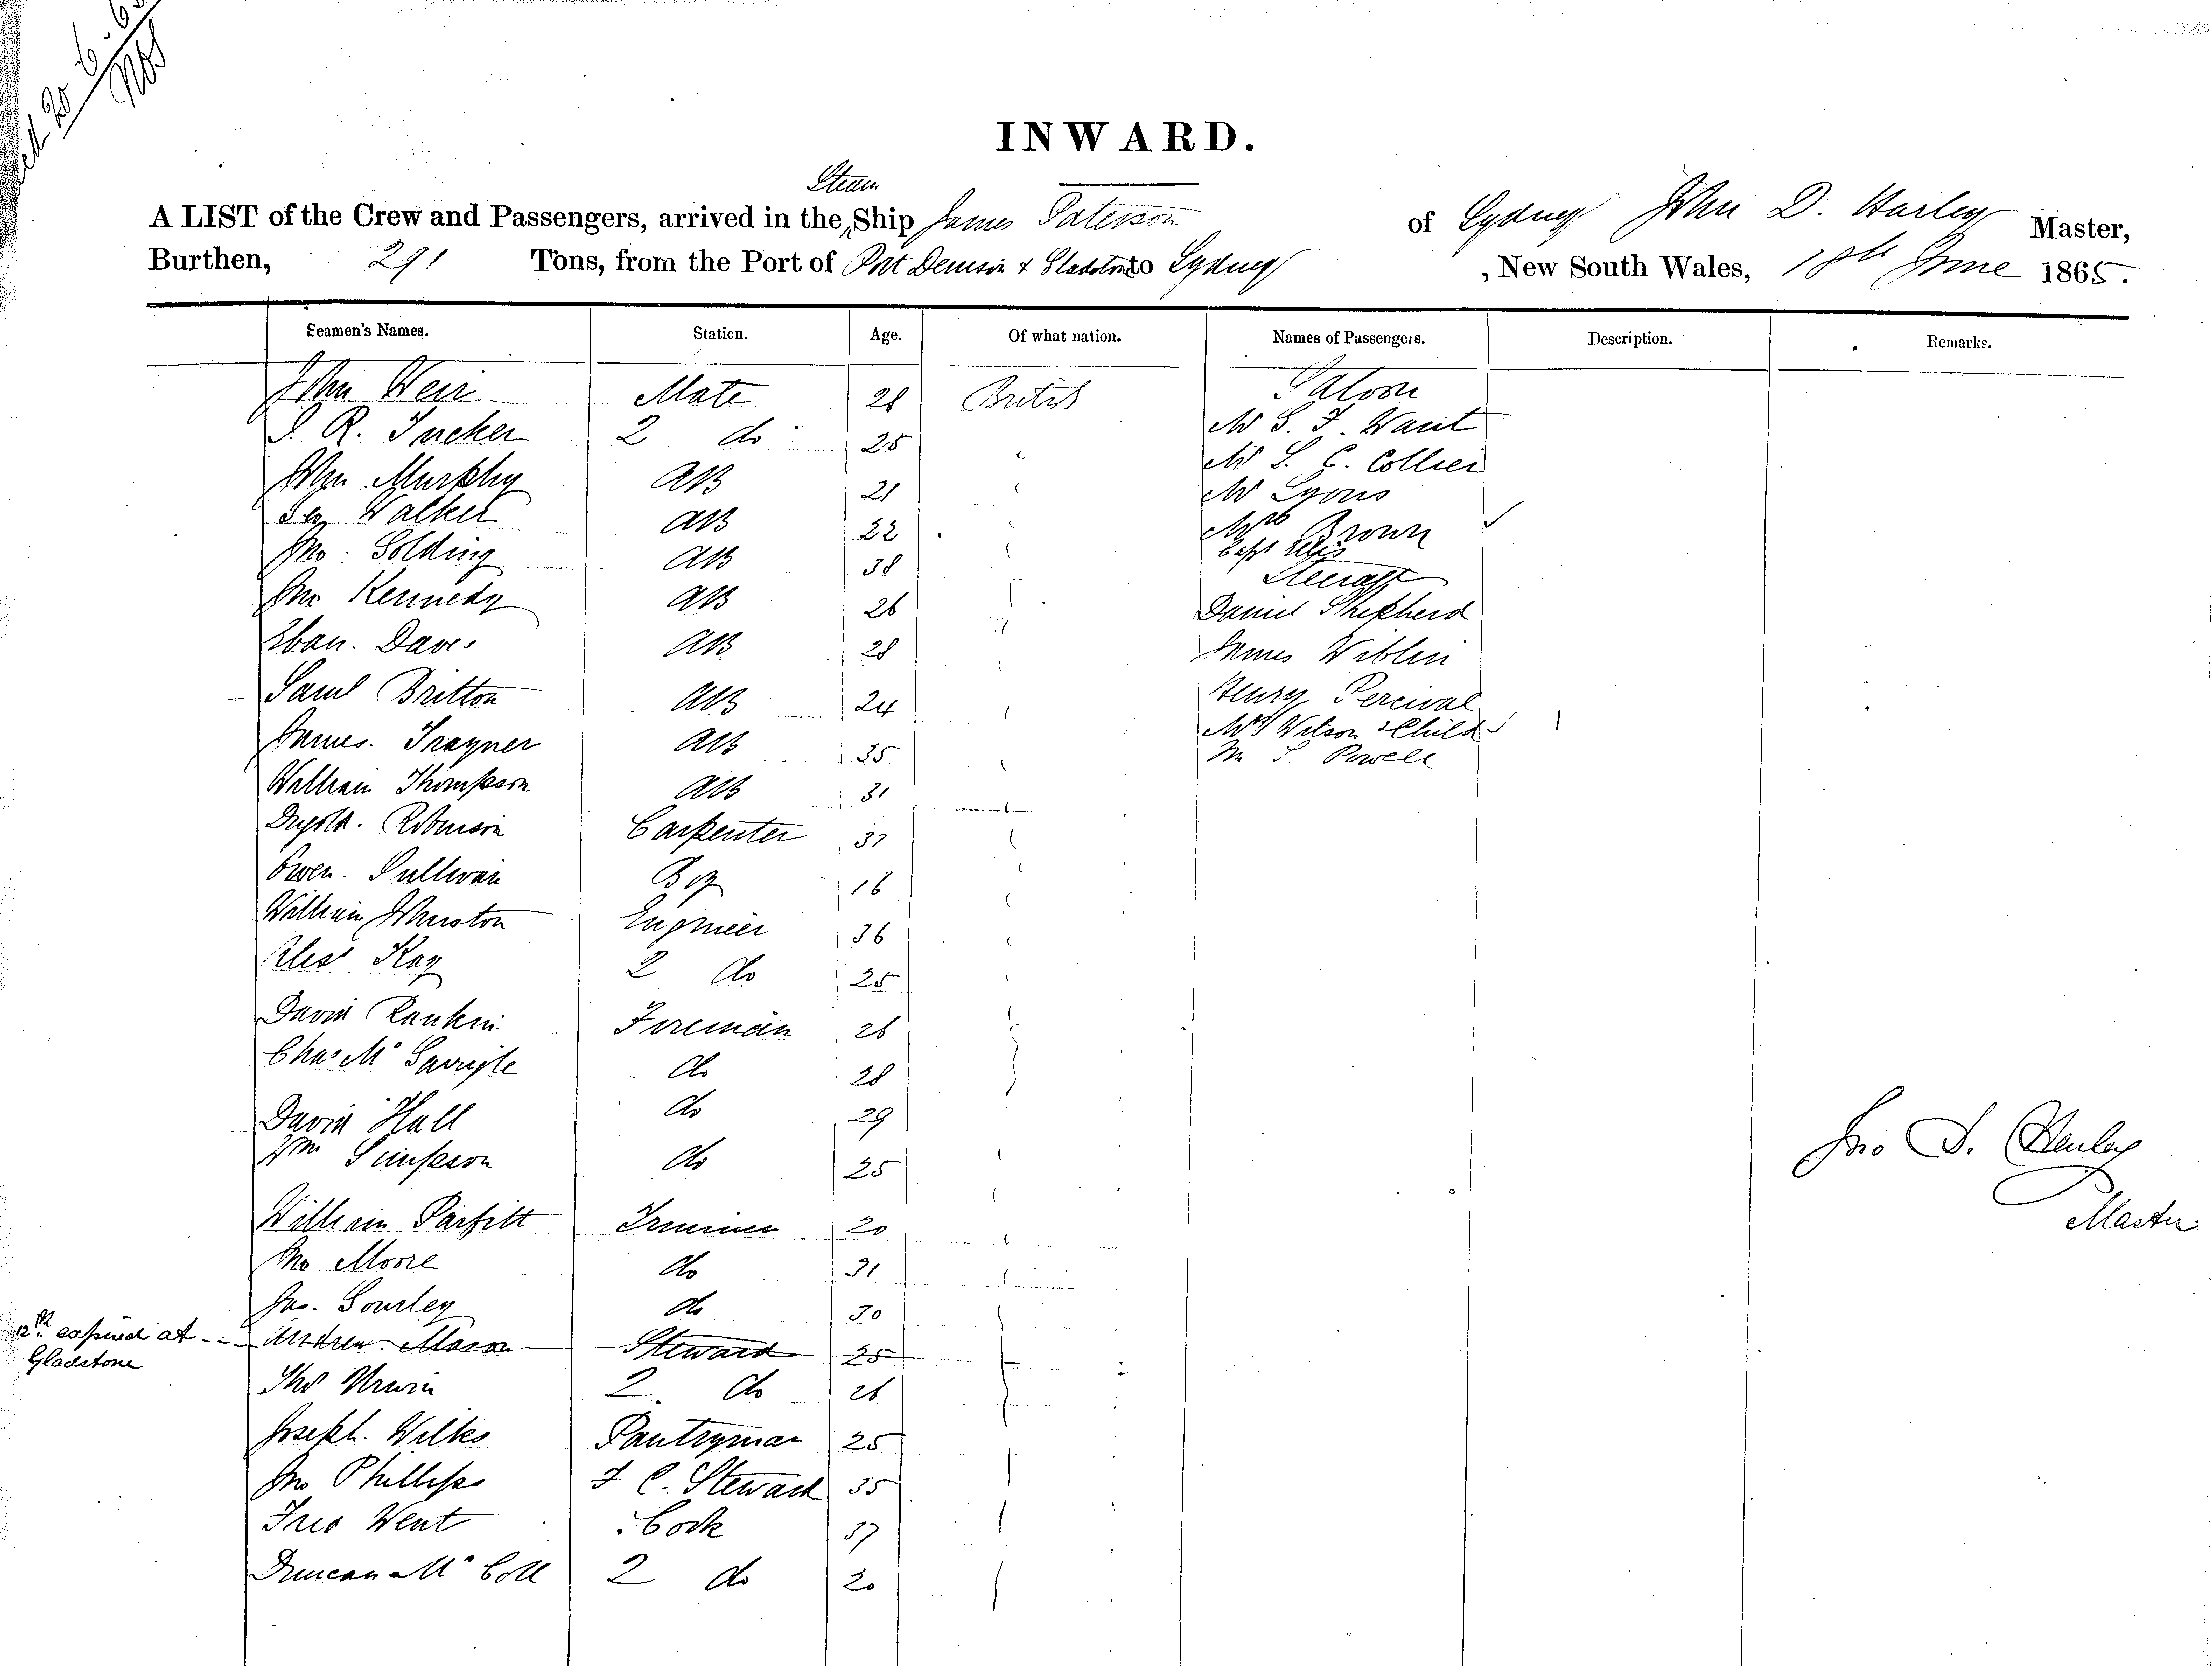 20-6-65
INWARD.
Steam
A LIST of the Crew and Passengers, arrived in the Ship James Paterson of Sydney John D. Harley Master,
Burthen, 291 Tons, from the Port of Port Denison & Gladstone to Sydney , New South Wales, 18th June 1865.
Seamen's Names. Station. Age. Of what nation. Names of Passengers. Description. Remarks.
John Weir Mate 28 British Saloon
R. Tucker 2 do 25 Mr S. F. Want
Wm Murphy AB 21 Mr L. C. Collier
Walker AB 22 Mr Lyons
Jno. Solding AB 38 Mrs Brown
Capt
Steerage
Jno Kennedy AB 26 Daniel Shepherd
Eban. Daves AB 28 James Wiblin
Saml Britton AB 24 Henry Percival
Mrs Wilson & Child
James. Trayner AB 35 S Powell
William Thompson AB 31
Robinson Carpenter 37
Owen. Sullivan Boy 16
William Engineer 36
Alexr Kay 2 do 25
David Rankin Fireman 26
Chas Mc do 28
David Hall do 29
Wm Simpson do 25
Jno D. Harley
Master
William Parfitt Trimmer 20
Jno Moore do 31
Jas. Gourley do 30
12th expired at Gladstone Andrew Mason Steward 25
Thos Urwin 2 do 26
Joseph. Wilkes Pantryman 25
Jno Phillips F C. Steward 35
Went Cook 37
Duncan Mc Coll 2 do 20